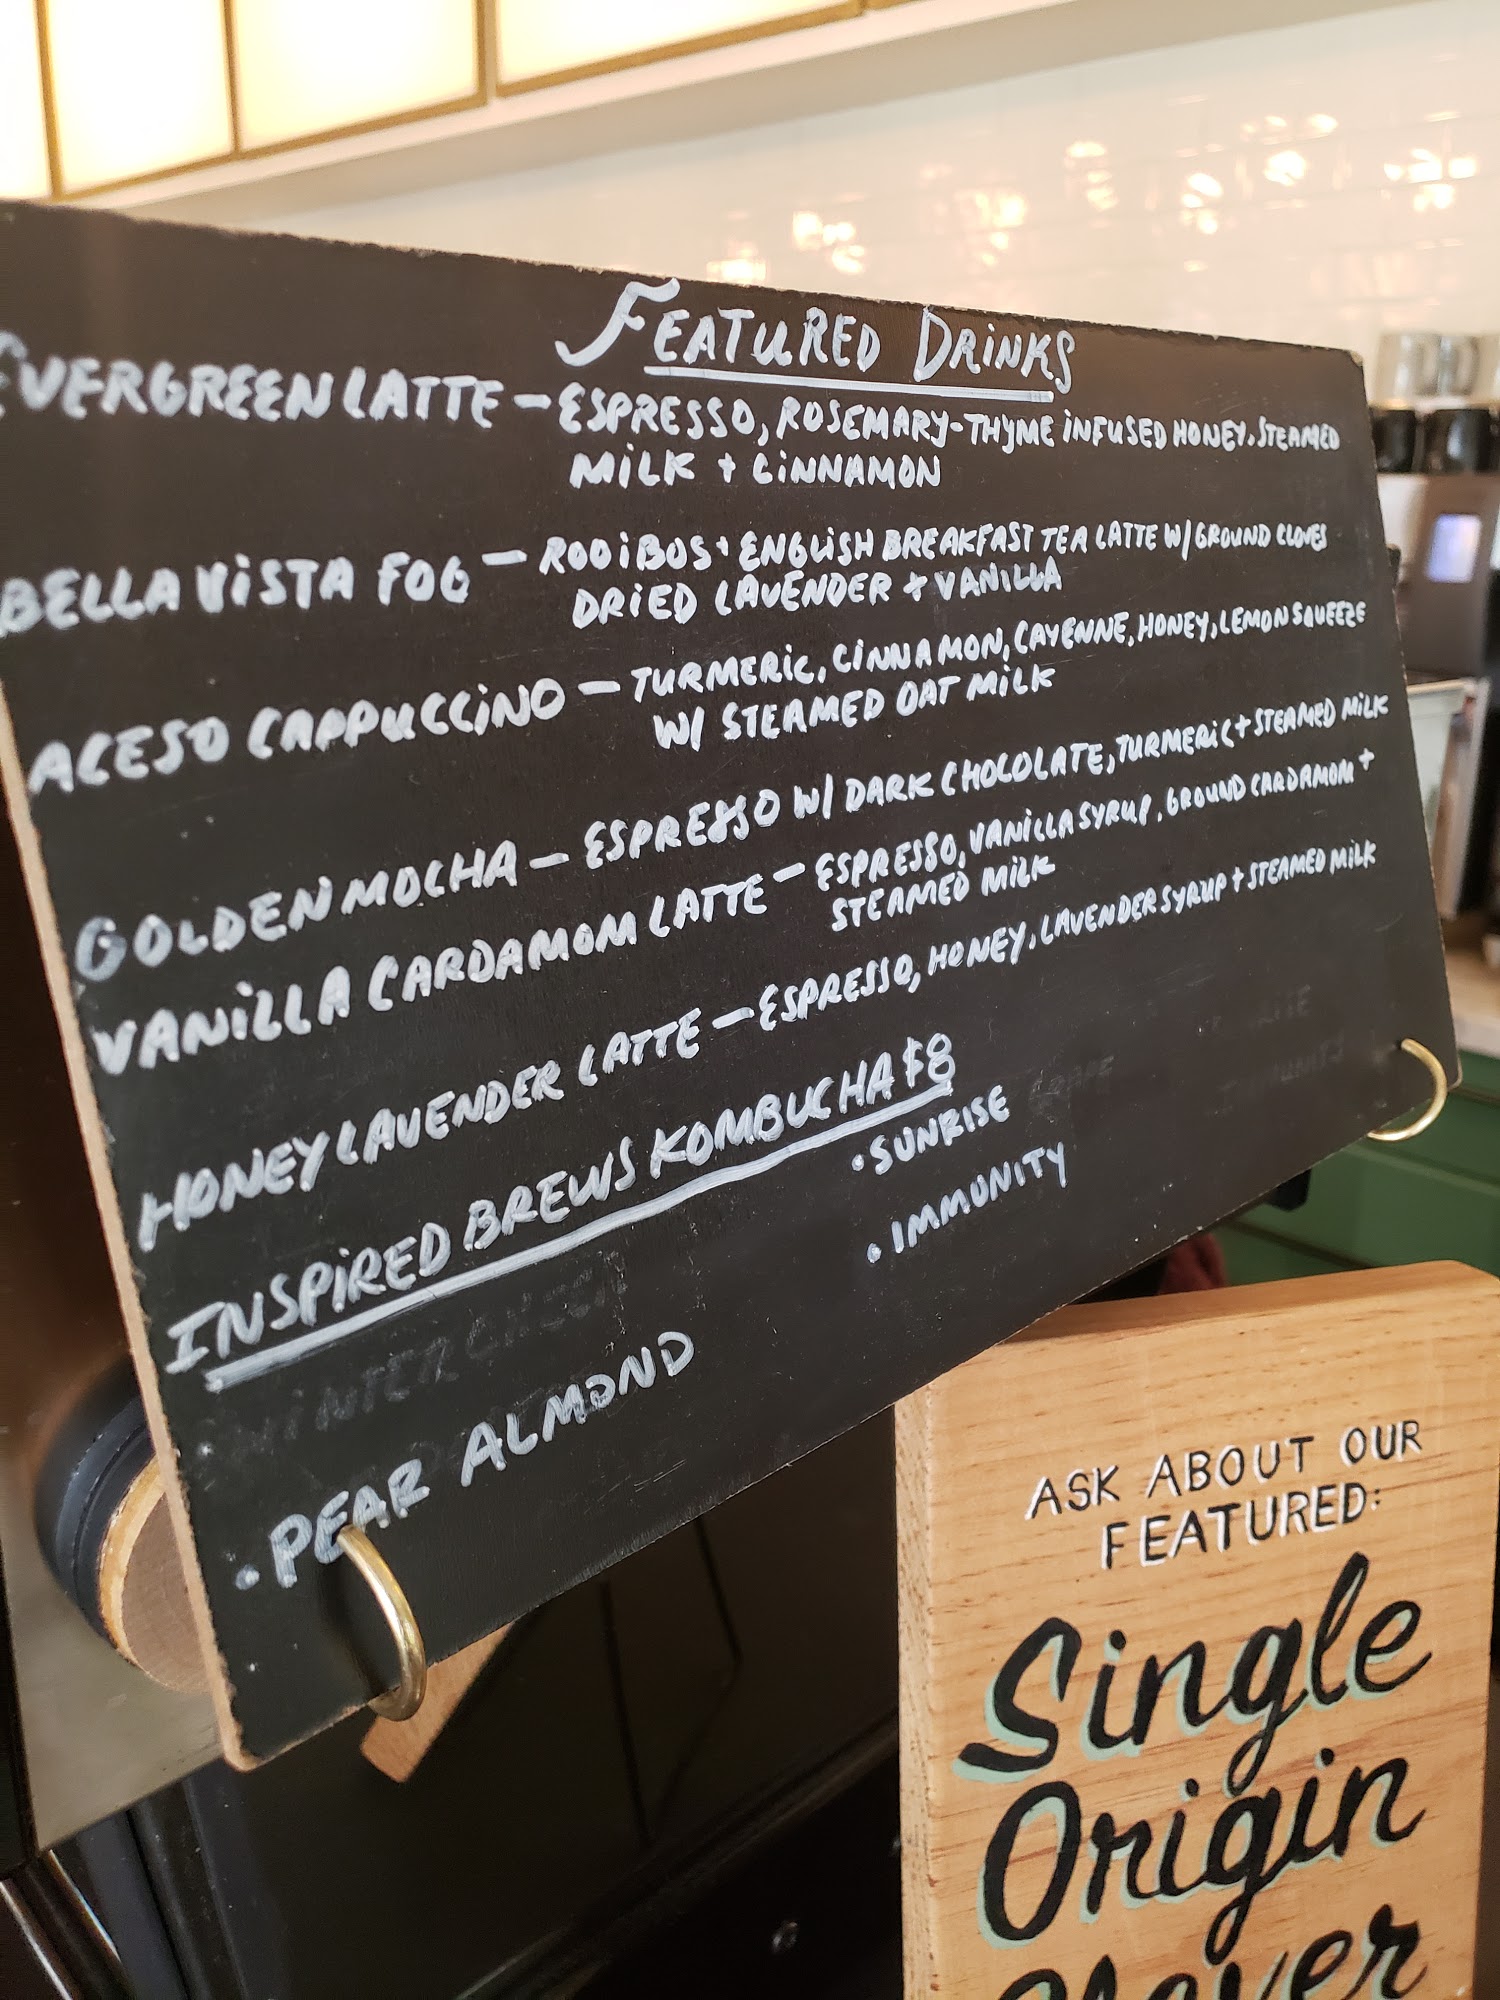 FEATURED DRINKS
EVERGREEN LATTE – ESPRESSO, ROSEMARY-THYME INFUSED HONEY, STEAMED
MILK + CINNAMON
BELLA VISTA FOG – ROOIBOS + ENGLISH BREAKFAST TEA LATTE W/ GROUND CLOVES
DRIED LAVENDER + VANILLA
ACESO CAPPUCCINO – TURMERIC, CINNAMON, CAYENNE, HONEY, LEMON SQUEEZE
W/ STEAMED OAT MILK
GOLDEN MOCHA – ESPRESSO W/ DARK CHOCOLATE, TURMERIC + STEAMED MILK
VANILLA CARDAMOM LATTE – ESPRESSO, VANILLA SYRUP, GROUND CARDAMOM +
STEAMED MILK
HONEY LAVENDER LATTE – ESPRESSO, HONEY, LAVENDER SYRUP + STEAMED MILK
INSPIRED BREWS KOMBUCHA $8
• SUNRISE
• IMMUNITY
• PEAR ALMOND
ASK ABOUT OUR
FEATURED:
Single
Origin